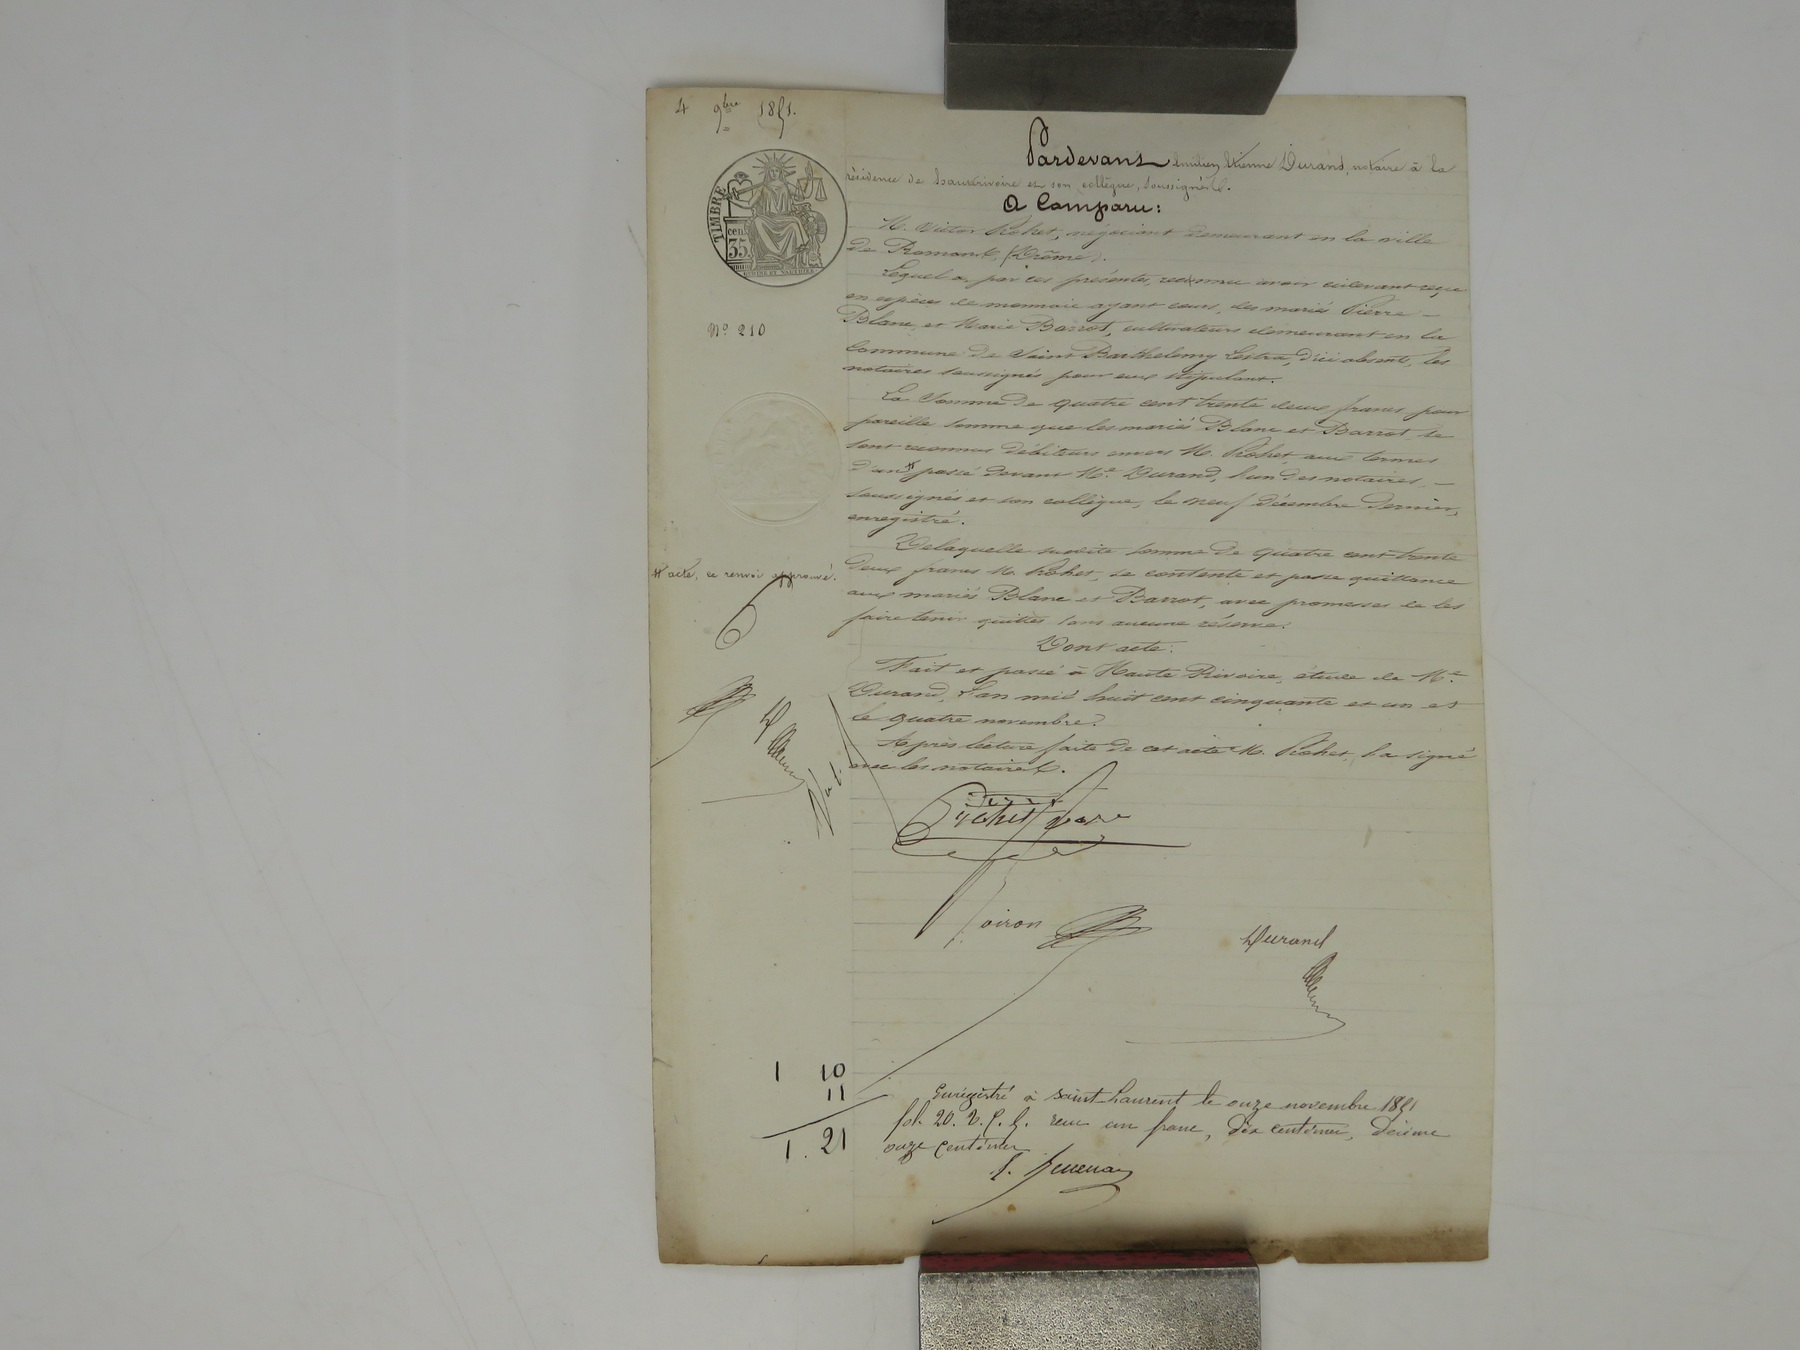 4 9bre 1851.
Pardevant Emilien Etienne Durand, notaire à la
résidence de hauterivoire et son collègue, soussignés.
A Comparu:
TIMBRE
cen.
35
Nº 210
M. Victor Rohet, négociant demeurant en la ville
de Romans, (Drôme).
Lequel a, par ces présentes, reconnu avoir cidevant reçu
en espèces de monnaie ayant cours, des mariés Pierre -
Blanc, et Marie Barrot, cultivateurs demeurant en la
Commune de Saint Barthelemy Lestra, d'ici absents, les
notaires soussignés pour eux stipulant.
La Somme de quatre cent trente deux francs pour
pareille somme que les mariés Blanc et Barrot se
sont reconnus débiteurs envers M. Rohet, aux termes
d'un # passé devant Me. Durand, l'un des notaires, -
soussignés et son collègue, le neuf décembre dernier,
enregistré.
# acte, ce renvoi approuvé.
Delaquelle susdite somme de quatre cent trente
deux francs M. Rohet, se contente et passe quittance
aux mariés Blanc et Barrot, avec promesses de les
faire tenir quittes sans aucune réserve.
Dont acte.
Fait et passé à Haute Rivoire, étude de Me.
Durand, L'an mil huit cent cinquante et un et
le quatre novembre.
Après lecture faite de cet acte M. Rohet, l'a signé
avec les notaires.
D
Rohet
Voiron
Durand
1 10
11
1. 21
Enregistré à Saint-Laurent le onze novembre 1851
fol. 20. V. C. 5. reçu un franc, dix centimes, décime
onze centimes